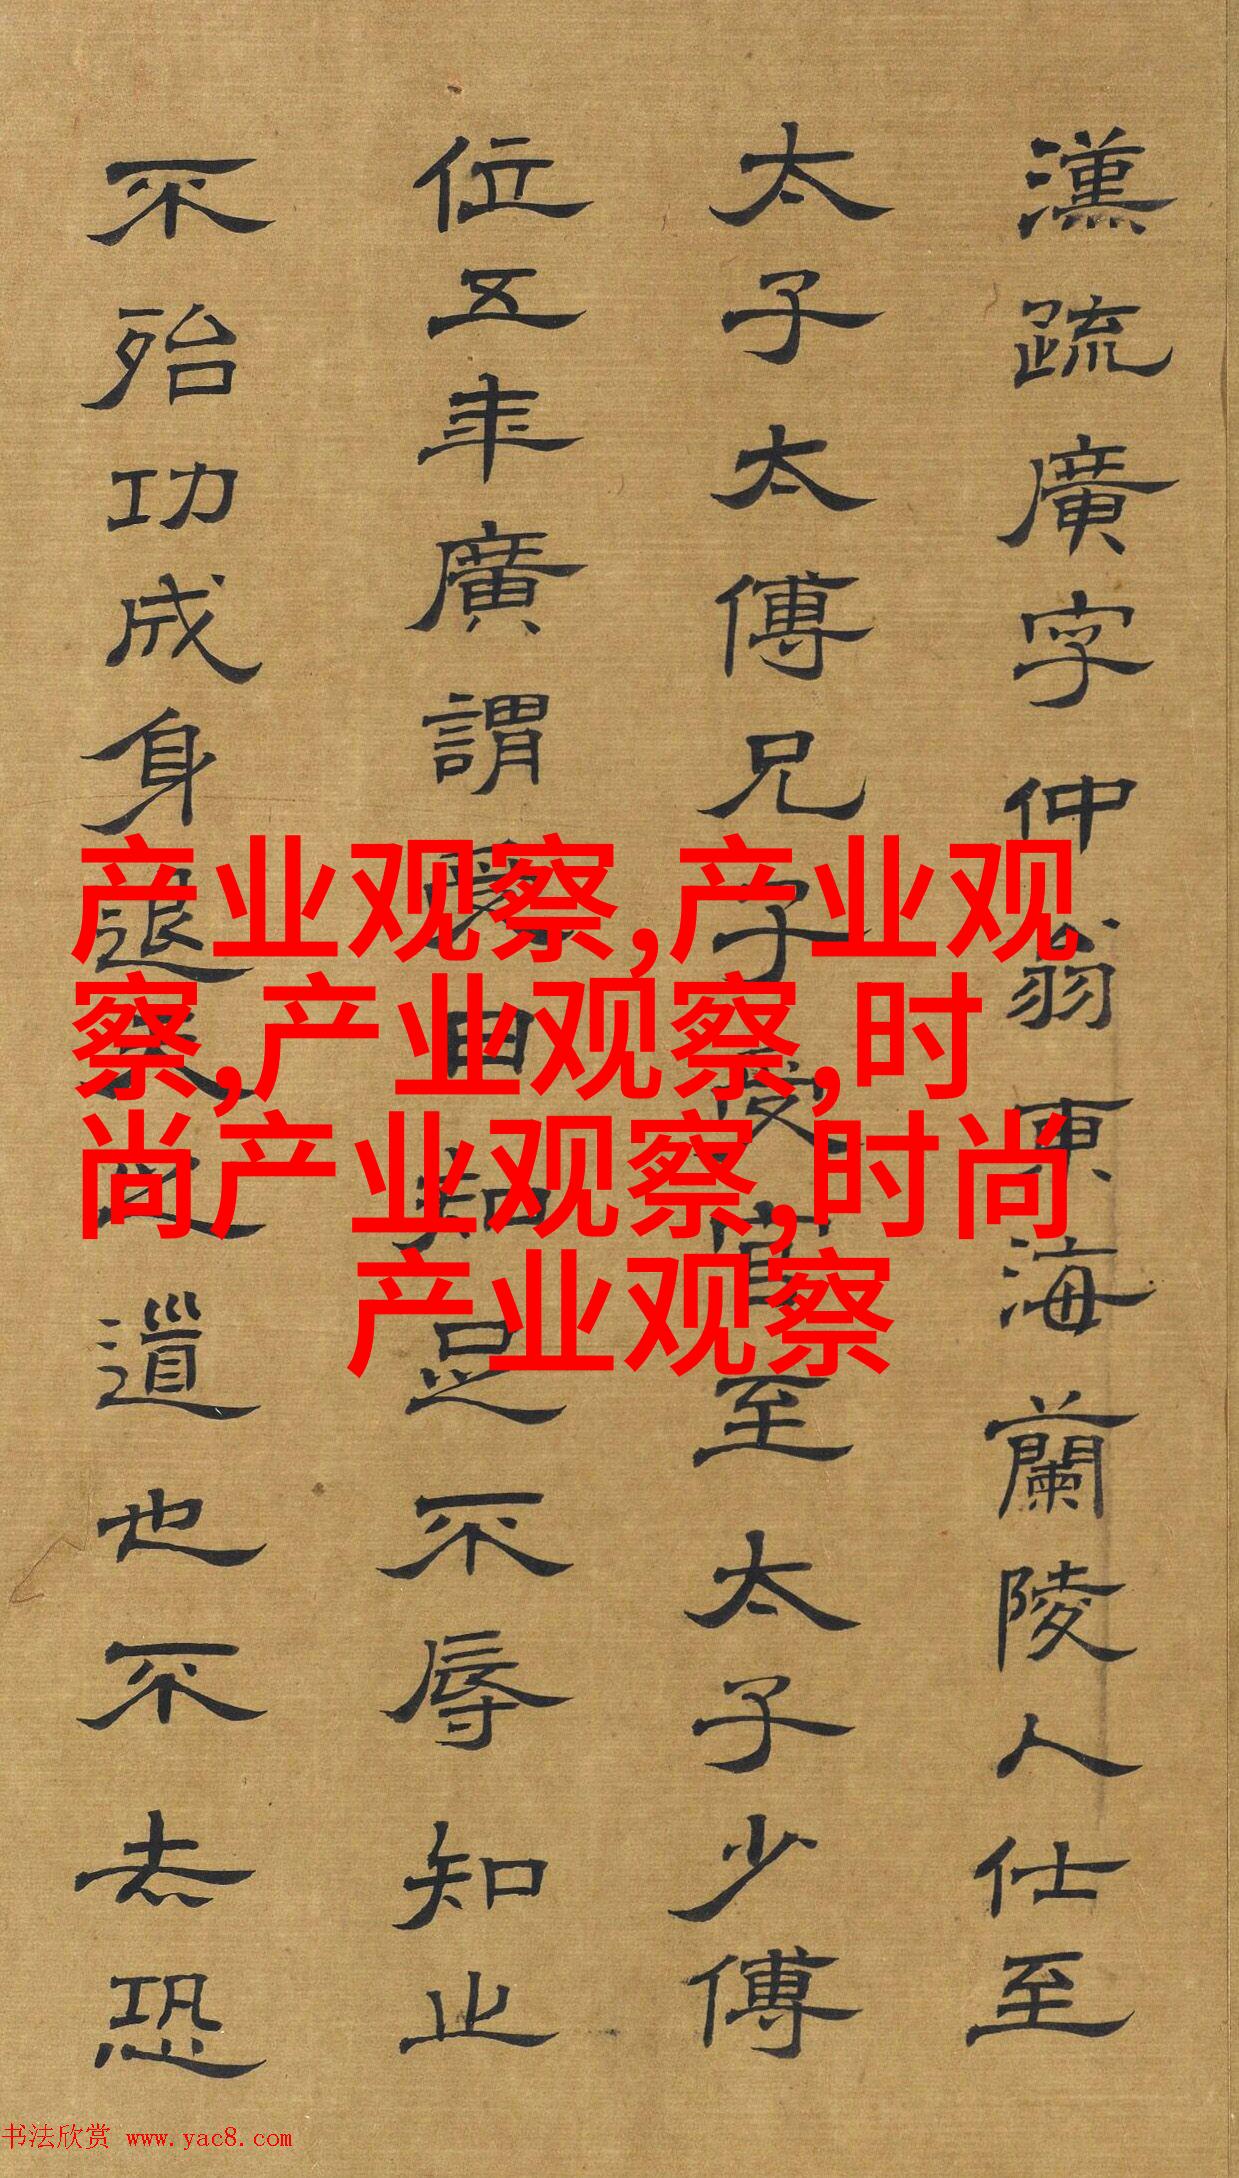 漢疏廣字仲翁東海蘭陵人仕至
太子太傅兄子受官至太子少傅
位五年廣謂受曰知足不辱知止
不殆功成身退天之道也不去恐
产业观察,产业观
察,产业观察,时
尚产业观察,时尚
产业观察
书法欣赏 www.yac8.com